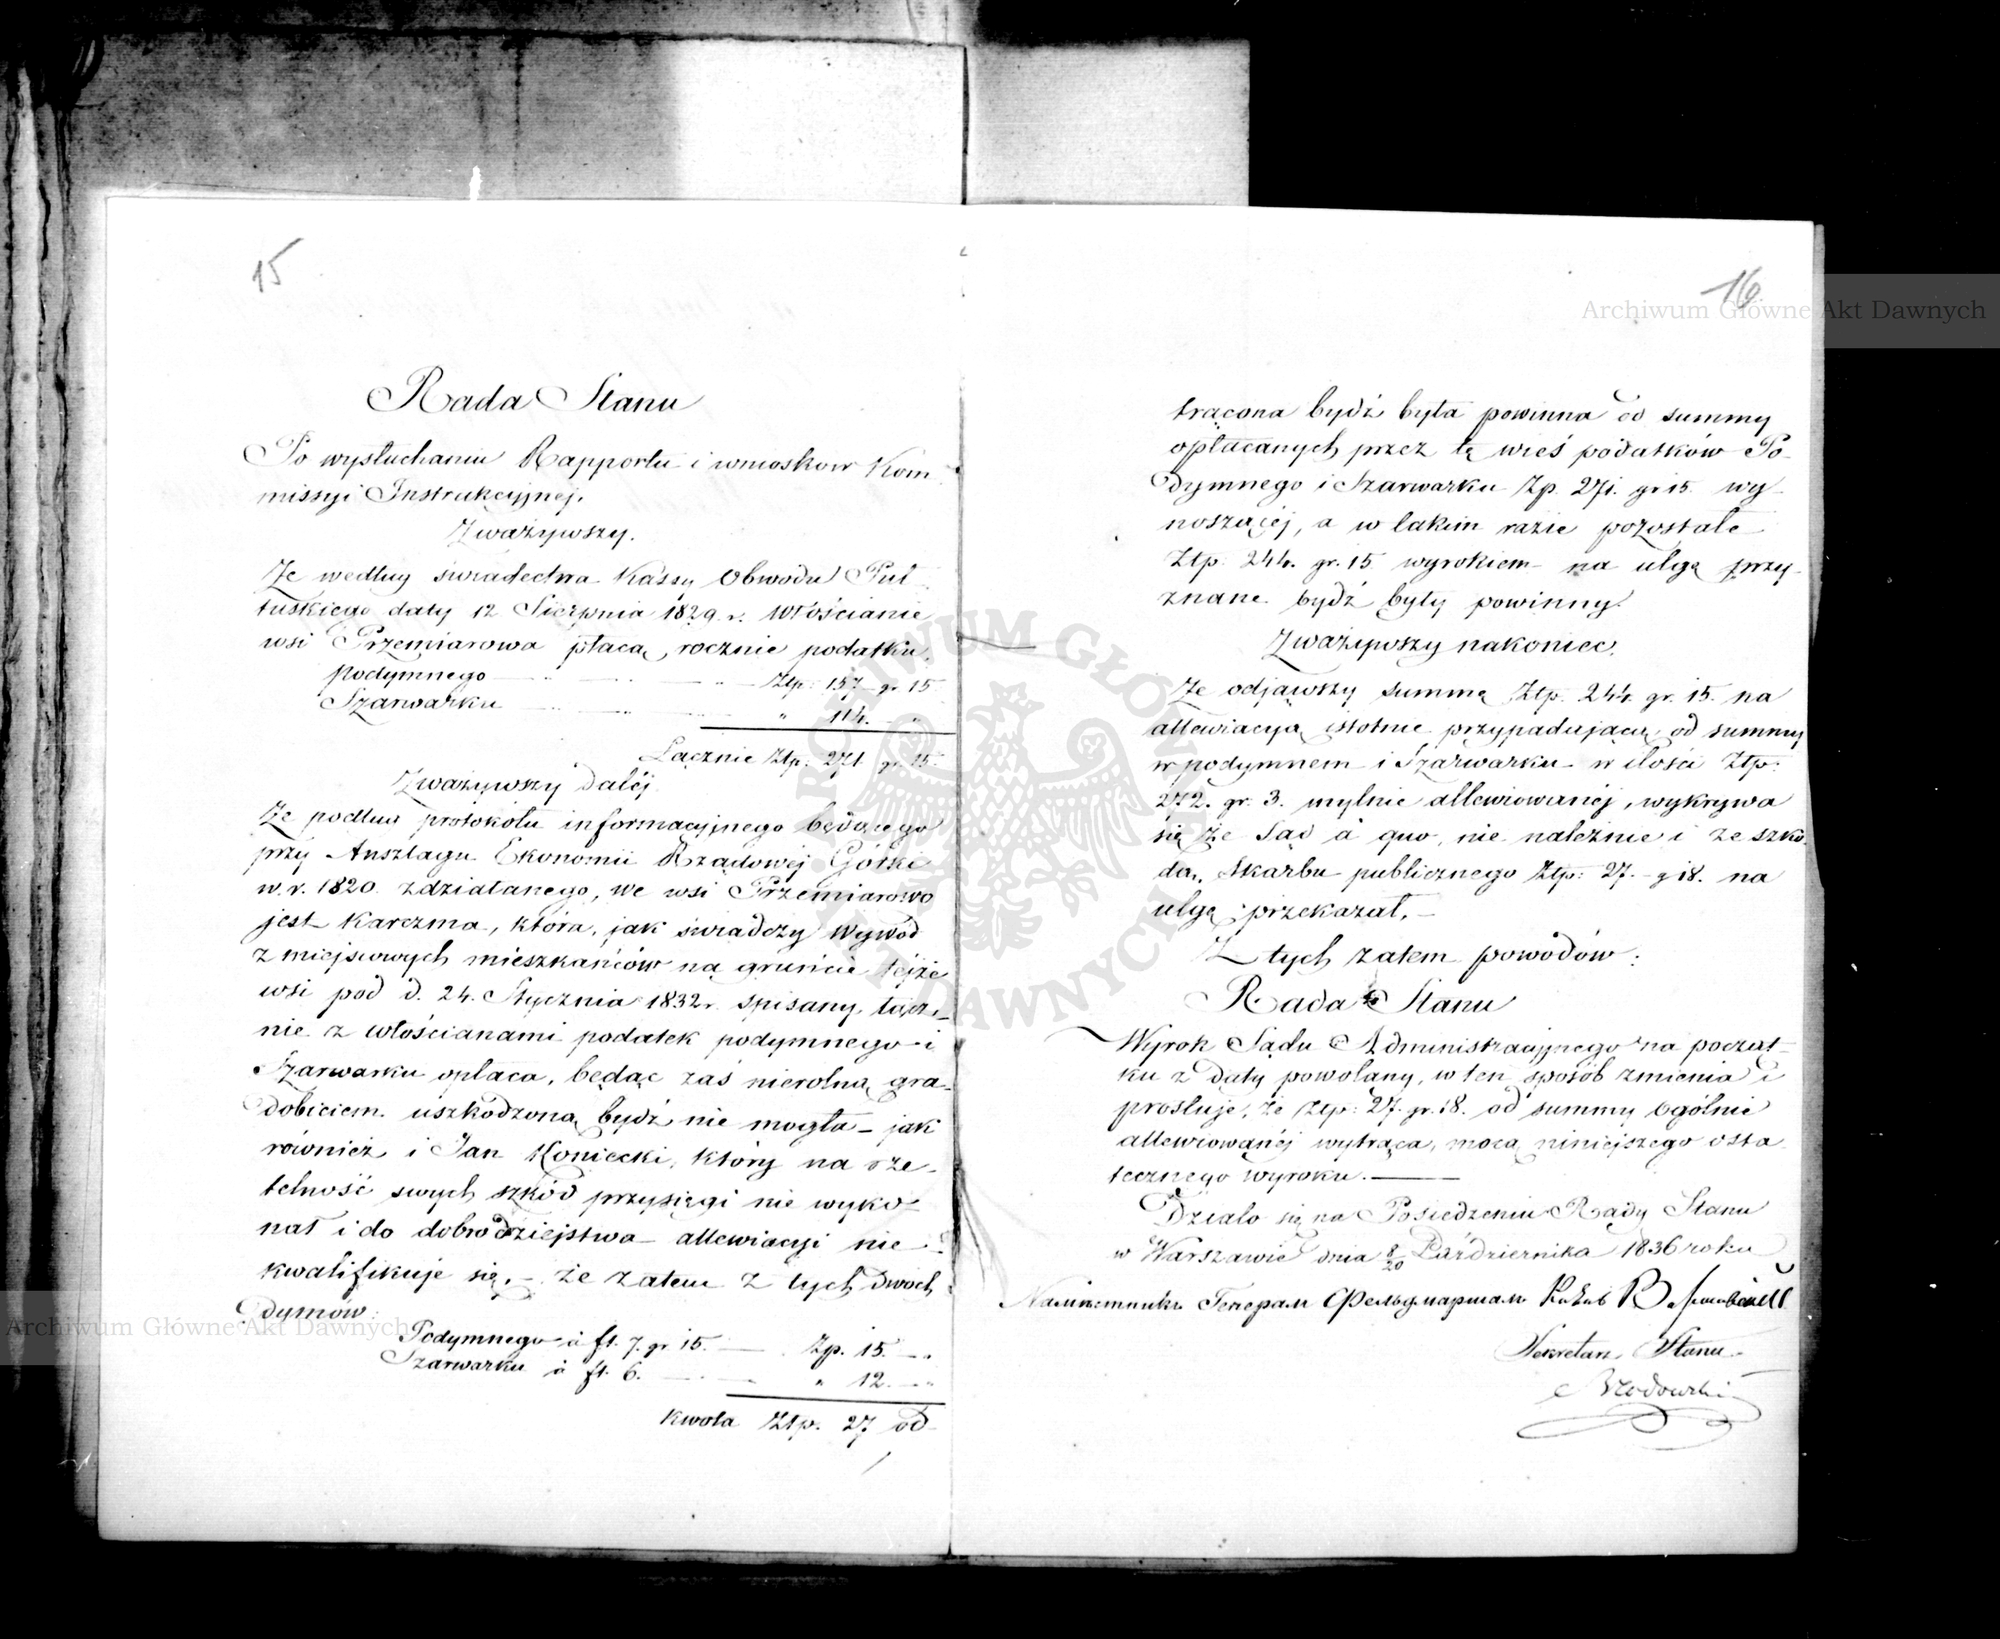 15
Rada Stanu
Po wysłuchaniu Rapportu i wniosków Kom
missyi Instrukcyjnej.
Zważywszy.
Że według świadectwa Kassy Obwodu Puł
tuskiego daty 12 Sierpnia 1829 r. Włościanie
wsi Przemiarowa płacą rocznie podatku
podymnego Ztp: 157 gr. 15
Szarwarku „ 114. „
Łącznie Ztp: 271 gr. 15
Zważywszy daléj
Że podług protokołu informacyjnego będącego
przy Anszlagu Ekonomii Rządowéj Górki
w r. 1820 zdziałanego, we wsi Przemiarowo
jest karczma, która, jak świadczy Wywód
z miejscowych mieszkańców na gruncie tejże
wsi pod d. 24. Stycznia 1832 r. spisany, łącz-
nie z włościanami podatek podymnego i
Szarwarku opłaca, będąc zaś nierolną gra-
dobiciem uszkodzoną bydź nie mogła – jak
również i Jan Koniecki, który na rze-
telność swych szkód przysięgi nie wyko-
nał i do dobrodziejstwa allewiacyi nie
kwalifikuje się. – że zatem z tych dwóch
dymów:
Podymnego à fl. 7. gr. 15. — Zp. 15. — „
Szarwarku à fl. 6. — „ 12. — „
Kwota Ztp. 27 od
16
trącona bydź była powinna od summy
opłacanych przez tę wieś podatków Po-
dymnego i Szarwarku Zp. 271. gr 15. wy-
noszącéj, a w takim razie pozostałe
Ztp. 244. gr. 15 wyrokiem na ulgę przy-
znane bydź były powinny.
Zważywszy nakoniec.
Że odjąwszy summę Ztp. 244. gr. 15. na
allewiacyą istotnie przypadającą od summy
w podymnem i Szarwarku w ilości Ztp:
272. gr. 3. mylnie allewiowanéj, wykrywa
się że Sąd à quo, nie należnie i ze szko-
dą Skarbu publicznego Ztp: 27. – g 18. na
ulgę przekazał. –
Z tych zatem powodów:
Rada Stanu
Wyrok Sądu Administracyjnego na począt-
ku z daty powołany, w ten sposób zmienia i
prostuje, że Ztp: 27. gr. 18. od summy ogólnie
allewiowanéj wytrąca, mocą niniejszego osta
tecznego wyroku. —
Działo się na Posiedzeniu Rady Stanu
w Warszawie dnia 8/20 Października 1836 roku
Намѣстникъ Генералъ Фельдмаршалъ
Sekretarz Stanu
Archiwum Główne Akt Dawnych
Archiwum Główne Akt Dawnych
ARCHIWUM GŁÓWNE AKT DAWNYCH